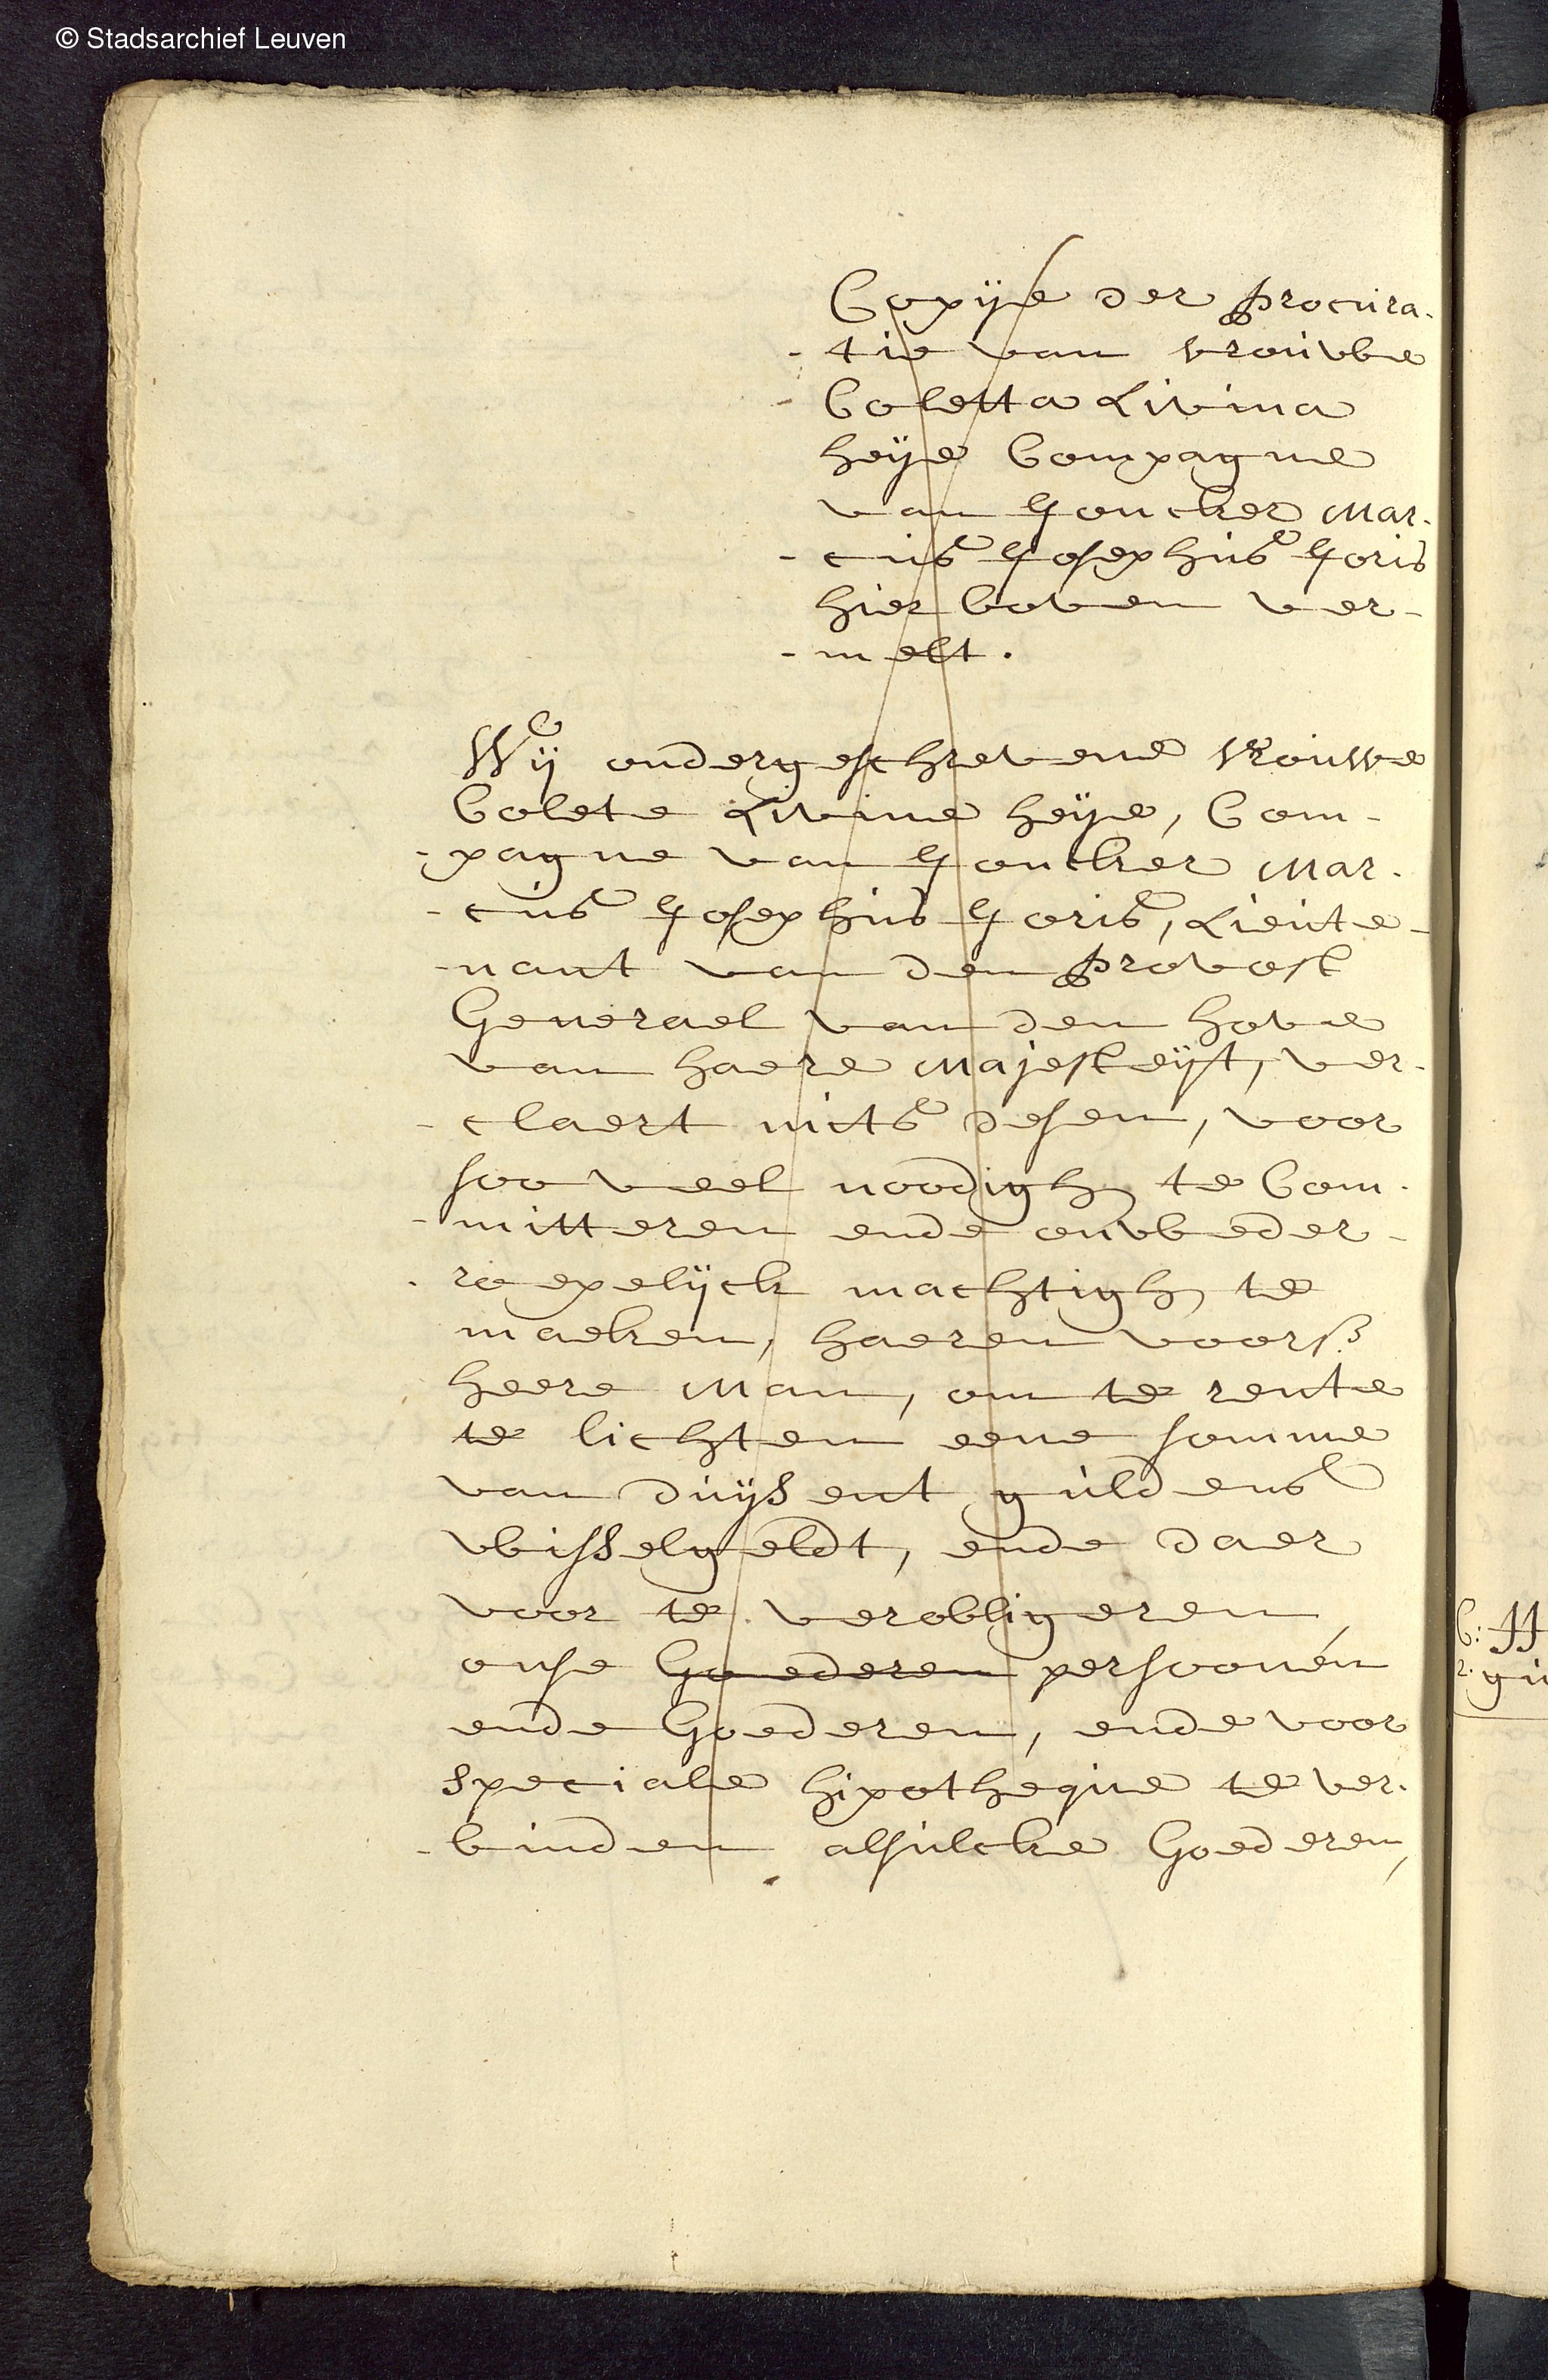 © Stadsarchief Leuven
Copije der procura-
-tie van vrouwe
Coletta Livina
heije Compagne
van Joncker Mar-
-cus Josephus Joris
hier boven ver-
-melt.
Wij ondergeschrevene vrouwe
Colete Livine heije, Com-
-pagne van Joncker Mar-
-cus Josephus Joris, Lieute-
-nant van den provost
Generael van den hove
van haere Majesteijt, ver-
-claert mits desen, voor
soo veel noodigh te Com-
-mitteren ende onwbeder-
-roepelijck machtigh te
maeken, haeren voorss
heere Man, om te rente
te lichten eene somme
van duijsent guldens
wisselgeldt, ende daer
voor te verobligeren
onse Goederen persoonen
ende Goederen, ende voor
speciale hipotheque te ver-
-binden alsulcke Goederen,